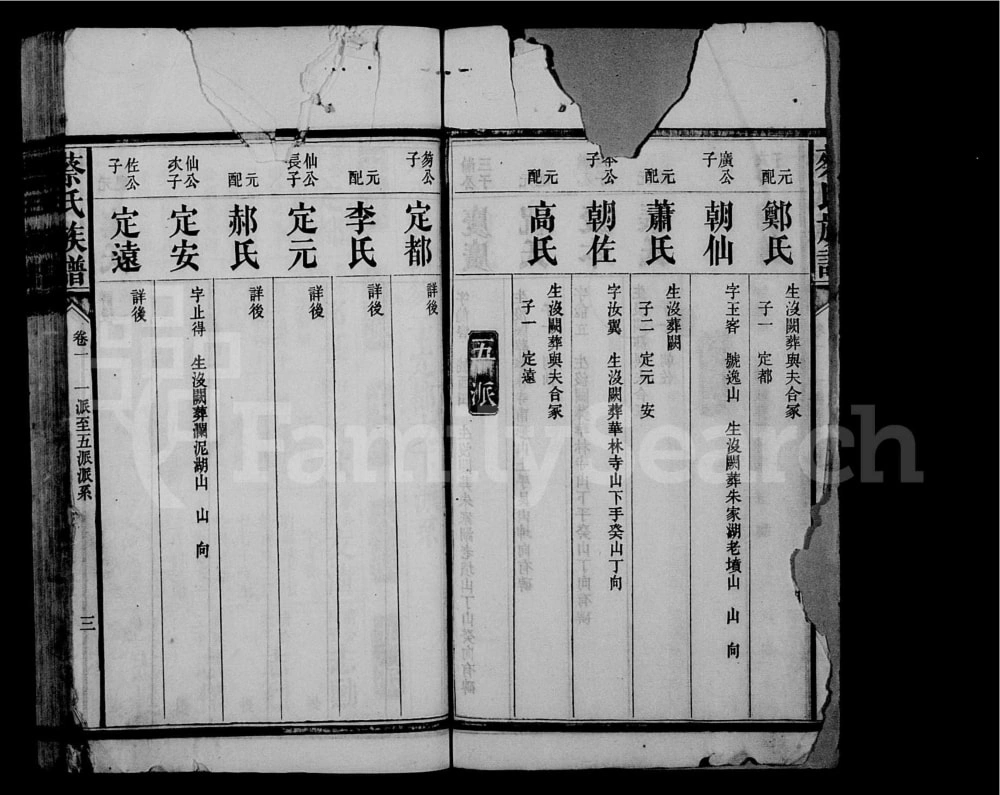 元配 鄭氏 生沒闕葬與夫合冢 子一 定都
廣公子 朝仙 字玉客 號逸山 生沒闕葬朱家湖老墳山 山 向
元配 蕭氏 生沒葬闕 子二 定元 安
朝佐 字汝翼 生沒闕葬華林寺山下手癸山丁向
元配 高氏 生沒闕葬與夫合冢 子一 定遠
五派
芻公子 定都 詳後
元配 李氏 詳後
仙公長子 定元 詳後
元配 郝氏 詳後
仙公次子 定安 字止得 生沒闕葬瀾泥湖山 山 向
佐公子 定遠 詳後
蔡氏族譜 卷一 一派至五派派系 三
FamilySearch